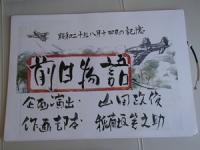 昭和二十年八月十四日の記憶
前日物語
企画演出・山田政俊
作画台本・稲荷坂笑之助